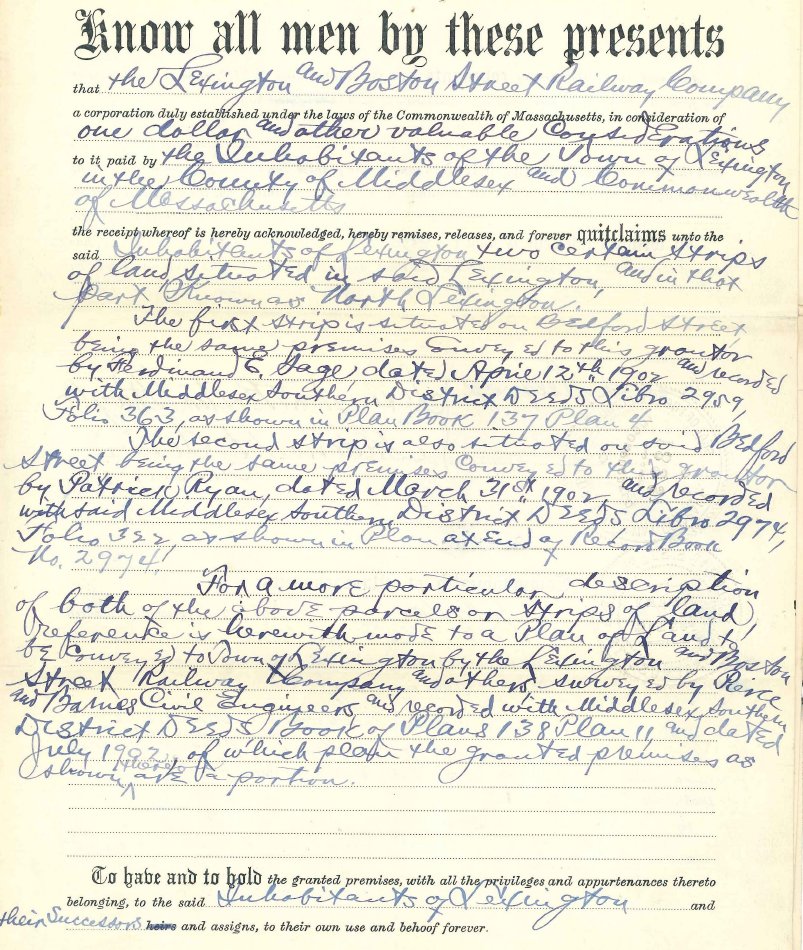 Know all men by these presents
that the Lexington and Boston Street Railway Company
a corporation duly established under the laws of the Commonwealth of Massachusetts, in consideration of
one dollar and other valuable Considerations
to it paid by the Inhabitants of the Town of Lexington
in the County of Middlesex and Commonwealth
of Massachusetts
the receipt whereof is hereby acknowledged, hereby remises, releases, and forever quitclaims unto the
said Inhabitants of Lexington two certain strips
of land situated in said Lexington, and in that
part Known as North Lexington.
The first strip is situated on Bedford Street,
being the same premises Conveyed to this grantor
by Ferdinand E. Sage, dated April 12th, 1902 and recorded
with Middlesex Southern District Deeds Libro 2959,
Folio 363, as shown in Plan Book 137 Plan 4
The second strip is also situated on said Bedford
Street being the same premises Conveyed to this grantor
by Patrick Ryan, dated March 31st 1902, and recorded
with said Middlesex Southern District Deeds Libro 2974,
Folio 322, as shown in Plan at End of Record Book
No. 2974,
For a more particular description
of both of the above parcels or strips of land,
reference is herewith made to a Plan of Land to
be Conveyed to Town of Lexington by the Lexington and Boston
Street Railway Company and others, surveyed by Pierce
and Barnes Civil Engineers, and recorded with Middlesex Southern
District Deeds Book of Plans 138 Plan 11 and dated
July 1902, of which plan the granted premises as
shown thereon are a portion.
To have and to hold the granted premises, with all the privileges and appurtenances thereto
belonging, to the said Inhabitants of Lexington and
their Successors heirs and assigns, to their own use and behoof forever.